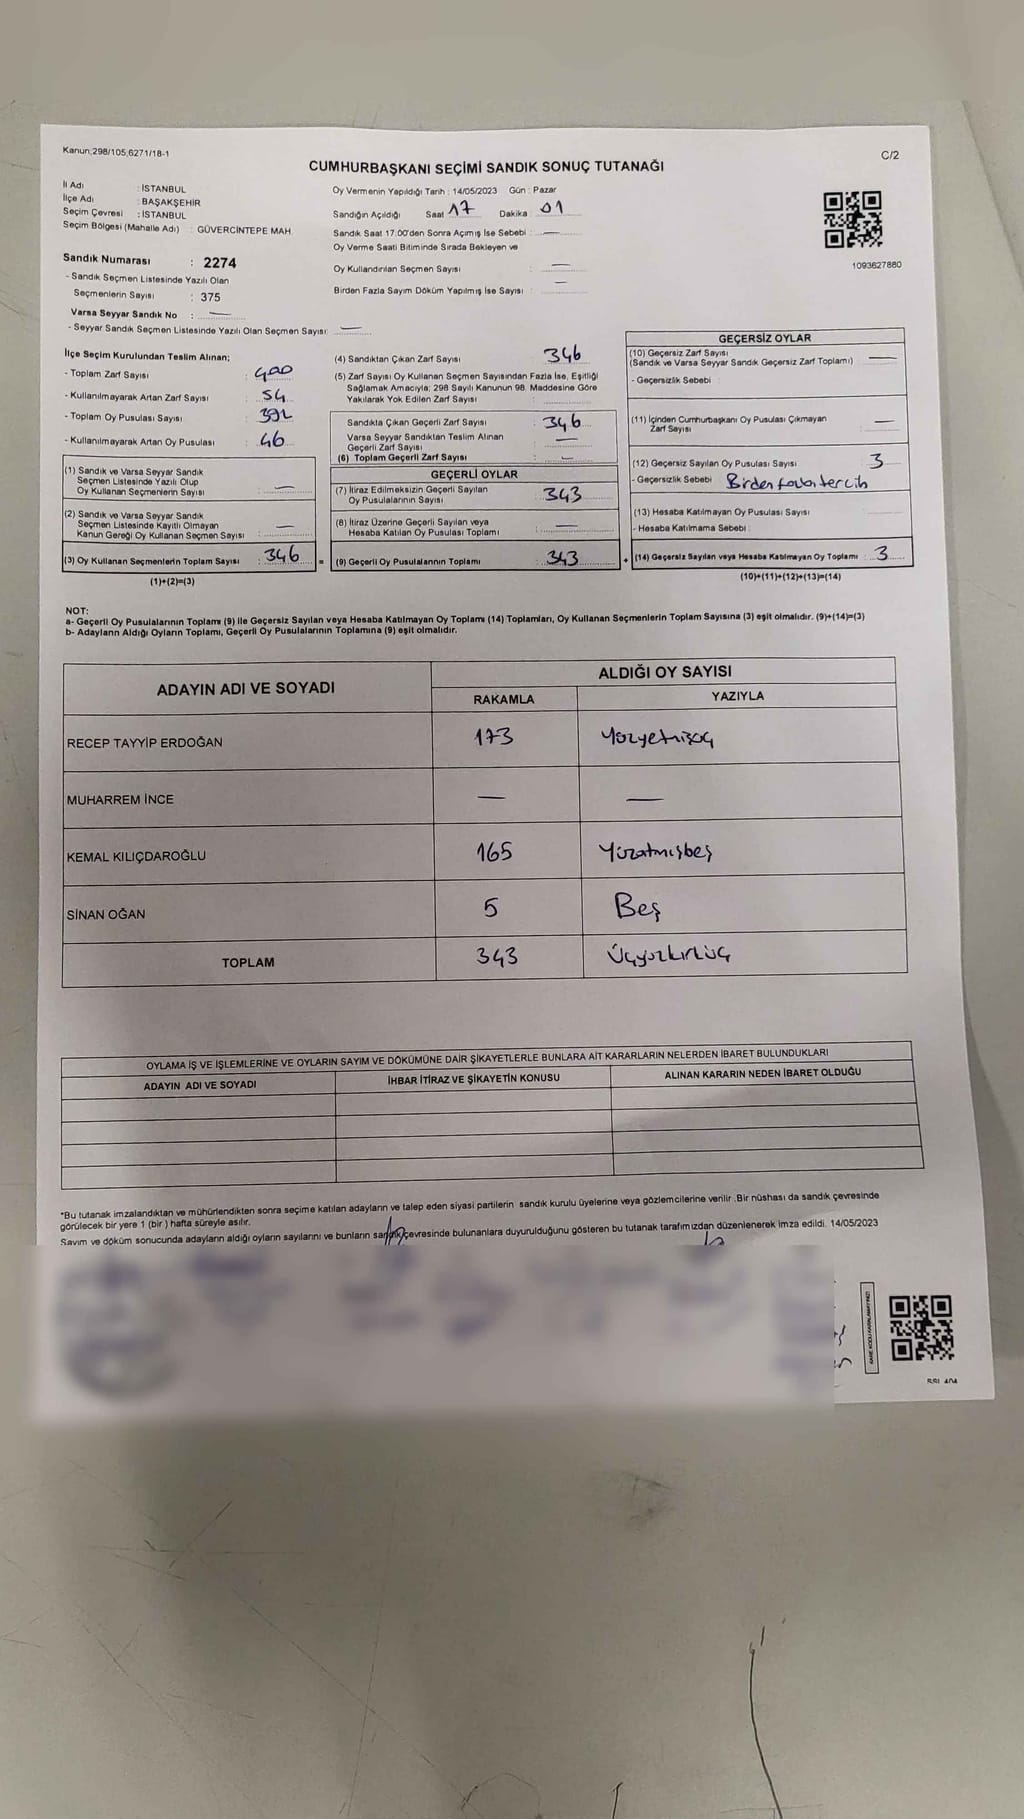 Kanun;298/105,6271/18-1
C/2
CUMHURBAŞKANI SEÇİMİ SANDIK SONUÇ TUTANAĞI
İl Adı : İSTANBUL
İlçe Adı : BAŞAKŞEHİR
Seçim Çevresi : İSTANBUL
Seçim Bölgesi (Mahalle Adı) : GÜVERCİNTEPE MAH.
Sandık Numarası : 2274
- Sandık Seçmen Listesinde Yazılı Olan
Seçmenlerin Sayısı : 375
Varsa Seyyar Sandık No : —
- Seyyar Sandık Seçmen Listesinde Yazılı Olan Seçmen Sayısı: —
Oy Vermenin Yapıldığı Tarih : 14/05/2023 Gün : Pazar
Sandığın Açıldığı Saat 17 Dakika 01
Sandık Saat 17.00'den Sonra Açımış İse Sebebi : —
Oy Verme Saati Bitiminde Sırada Bekleyen ve
Oy Kullandırılan Seçmen Sayısı : —
Birden Fazla Sayım Döküm Yapılmış İse Sayısı : —
1093627880
İlçe Seçim Kurulundan Teslim Alınan;
- Toplam Zarf Sayısı : 400
- Kullanılmayarak Artan Zarf Sayısı : 54
- Toplam Oy Pusulası Sayısı : 392
- Kullanılmayarak Artan Oy Pusulası : 46
(1) Sandık ve Varsa Seyyar Sandık
Seçmen Listesinde Yazılı Olup
Oy Kullanan Seçmenlerin Sayısı : —
(2) Sandık ve Varsa Seyyar Sandık
Seçmen Listesinde Kayıtlı Olmayan
Kanun Gereği Oy Kullanan Seçmen Sayısı : —
(3) Oy Kullanan Seçmenlerin Toplam Sayısı : 346
(1)+(2)=(3)
(4) Sandıktan Çıkan Zarf Sayısı : 346
(5) Zarf Sayısı Oy Kullanan Seçmen Sayısından Fazla İse, Eşitliği
Sağlamak Amacıyla; 298 Sayılı Kanunun 98. Maddesine Göre
Yakılarak Yok Edilen Zarf Sayısı :
Sandıkta Çıkan Geçerli Zarf Sayısı : 346
Varsa Seyyar Sandıktan Teslim Alınan
Geçerli Zarf Sayısı : —
(6) Toplam Geçerli Zarf Sayısı : —
GEÇERLİ OYLAR
(7) İtiraz Edilmeksizin Geçerli Sayılan
Oy Pusulalarının Sayısı : 343
(8) İtiraz Üzerine Geçerli Sayılan veya
Hesaba Katılan Oy Pusulası Toplamı : —
= (9) Geçerli Oy Pusulalarının Toplamı : 343
GEÇERSİZ OYLAR
(10) Geçersiz Zarf Sayısı
(Sandık ve Varsa Seyyar Sandık Geçersiz Zarf Toplamı) : —
- Geçersizlik Sebebi :
(11) İçinden Cumhurbaşkanı Oy Pusulası Çıkmayan
Zarf Sayısı : —
(12) Geçersiz Sayılan Oy Pusulası Sayısı : 3
- Geçersizlik Sebebi : Birden fazla tercih
(13) Hesaba Katılmayan Oy Pusulası Sayısı :
- Hesaba Katılmama Sebebi :
+ (14) Geçersiz Sayılan veya Hesaba Katılmayan Oy Toplamı : 3
(10)+(11)+(12)+(13)=(14)
NOT:
a- Geçerli Oy Pusulalarının Toplamı (9) ile Geçersiz Sayılan veya Hesaba Katılmayan Oy Toplamı (14) Toplamları, Oy Kullanan Seçmenlerin Toplam Sayısına (3) eşit olmalıdır. (9)+(14)=(3)
b- Adayların Aldığı Oyların Toplamı, Geçerli Oy Pusulalarının Toplamına (9) eşit olmalıdır.
ADAYIN ADI VE SOYADI
ALDIĞI OY SAYISI
RAKAMLA YAZIYLA
RECEP TAYYİP ERDOĞAN 173 Yüzyetmişüç
MUHARREM İNCE — —
KEMAL KILIÇDAROĞLU 165 Yüzatmışbeş
SİNAN OĞAN 5 Beş
TOPLAM 343 Üçyüzkırküç
OYLAMA İŞ VE İŞLEMLERİNE VE OYLARIN SAYIM VE DÖKÜMÜNE DAİR ŞİKAYETLERLE BUNLARA AİT KARARLARIN NELERDEN İBARET BULUNDUKLARI
ADAYIN ADI VE SOYADI İHBAR İTİRAZ VE ŞİKAYETİN KONUSU ALINAN KARARIN NEDEN İBARET OLDUĞU
*Bu tutanak imzalandıktan ve mühürlendikten sonra seçime katılan adayların ve talep eden siyasi partilerin sandık kurulu üyelerine veya gözlemcilerine verilir .Bir nüshası da sandık çevresinde
görülecek bir yere 1 (bir ) hafta süreyle asılır.
Sayım ve döküm sonucunda adayların aldığı oyların sayılarını ve bunların sandık çevresinde bulunanlara duyurulduğunu gösteren bu tutanak tarafımızdan düzenlenerek imza edildi. 14/05/2023